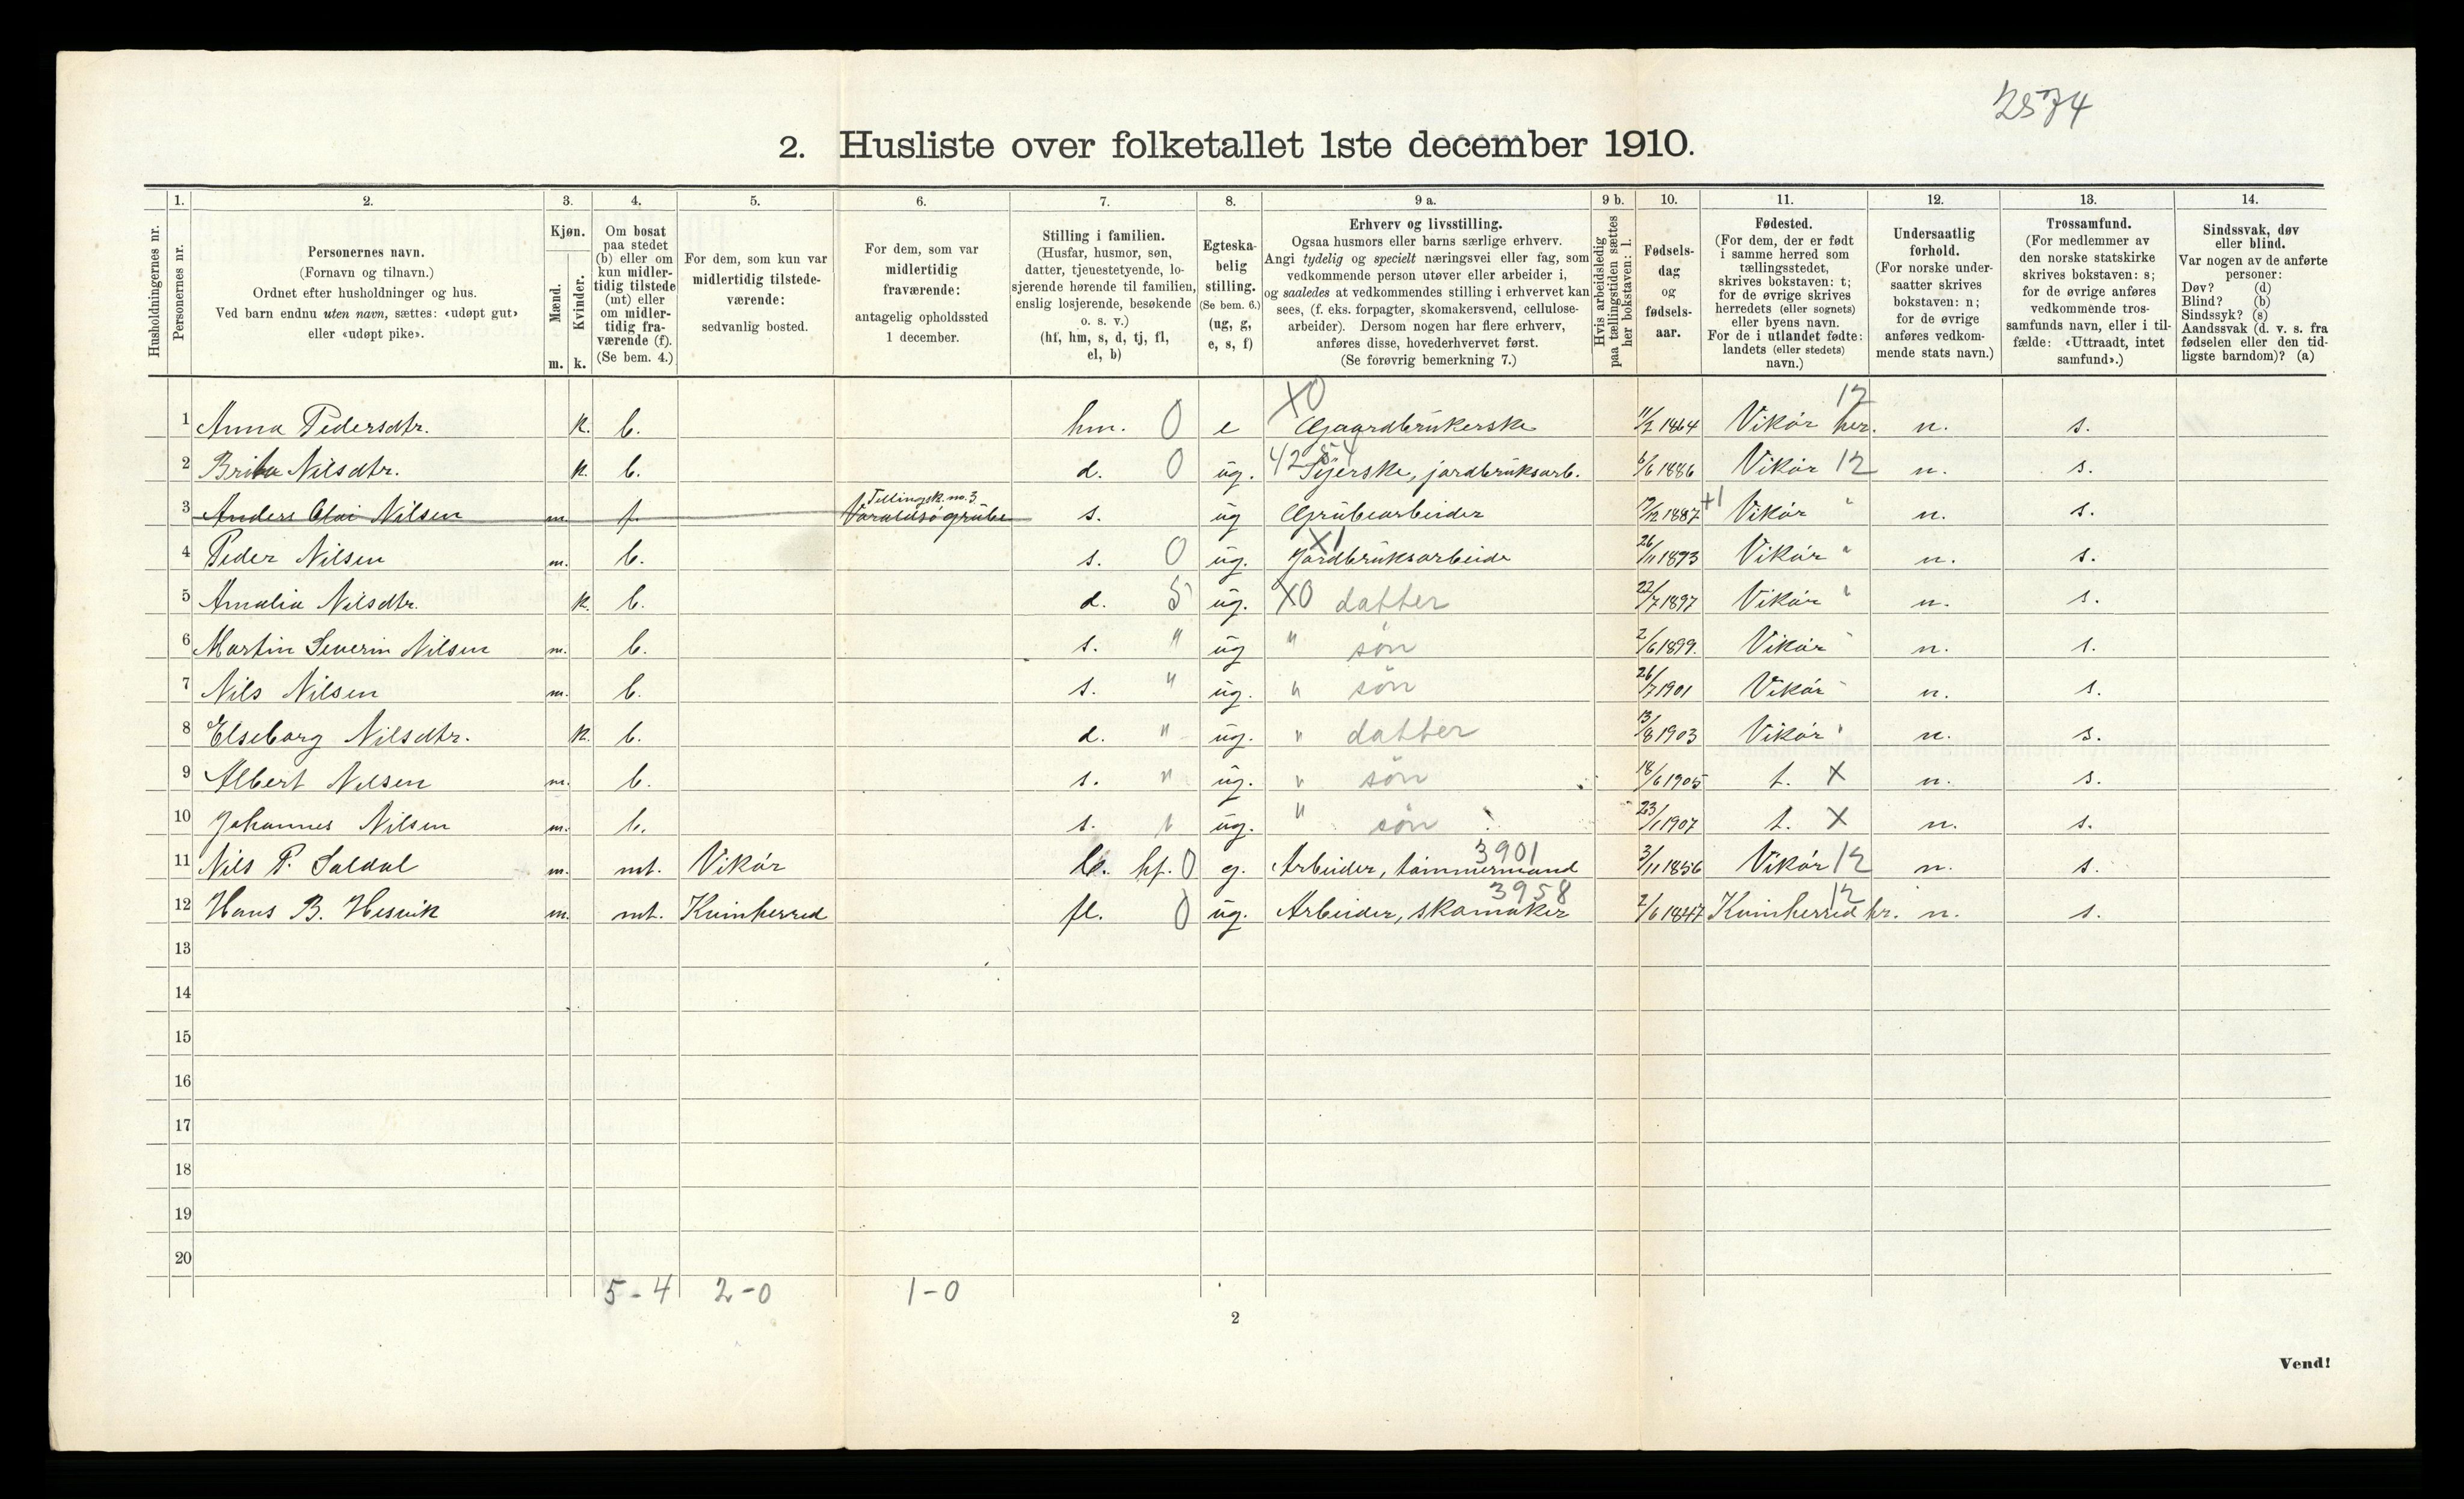 2574
2. Husliste over folketallet 1ste december 1910.
Husholdningernes nr.
1. Personernes nr.
2. Personernes navn.
(Fornavn og tilnavn.)
Ordnet efter husholdninger og hus.
Ved barn endnu uten navn, sættes: «udøpt gut»
eller «udøpt pike».
3. Kjøn.
Mænd. Kvinder.
m. k.
4. Om bosat
paa stedet
(b) eller om
kun midler-
tidig tilstede
(mt) eller
om midler-
tidig fra-
værende (f).
(Se bem. 4.)
5. For dem, som kun var
midlertidig tilstede-
værende:
sedvanlig bosted.
6. For dem, som var
midlertidig
fraværende:
antagelig opholdssted
1 december.
7. Stilling i familien.
(Husfar, husmor, søn,
datter, tjenestetyende, lo-
sjerende hørende til familien,
enslig losjerende, besøkende
o. s. v.)
(hf, hm, s, d, tj, fl,
el, b)
8. Egteska-
belig
stilling.
(Se bem. 6.)
(ug, g,
e, s, f)
9 a. Erhverv og livsstilling.
Ogsaa husmors eller barns særlige erhverv.
Angi tydelig og specielt næringsvei eller fag, som
vedkommende person utøver eller arbeider i,
og saaledes at vedkommendes stilling i erhvervet kan
sees, (f. eks. forpagter, skomakersvend, cellulose-
arbeider). Dersom nogen har flere erhverv,
anføres disse, hovederhvervet først.
(Se forøvrig bemerkning 7.)
9 b. Hvis arbeidsledig
paa tællingstiden sættes
her bokstaven: l.
10. Fødsels-
dag
og
fødsels-
aar.
11. Fødested.
(For dem, der er født
i samme herred som
tællingsstedet,
skrives bokstaven: t;
for de øvrige skrives
herredets (eller sognets)
eller byens navn.
For de i utlandet fødte:
landets (eller stedets)
navn.)
12. Undersaatlig
forhold.
(For norske under-
saatter skrives
bokstaven: n;
for de øvrige
anføres vedkom-
mende stats navn.)
13. Trossamfund.
(For medlemmer av
den norske statskirke
skrives bokstaven: s;
for de øvrige anføres
vedkommende tros-
samfunds navn, eller i til-
fælde: «Uttraadt, intet
samfund».)
14. Sindssvak, døv
eller blind.
Var nogen av de anførte
personer:
Døv? (d)
Blind? (b)
Sindssyk? (s)
Aandssvak (d. v. s. fra
fødselen eller den tid-
ligste barndom)? (a)
1 Anna Pedersdtr. k. b. hm. 0 e X0 Gaardbrukerske 11/2 1864 Vikør her. 12 n. s.
2 Brita Nilsdtr. k. b. d. 0 ug. Syerske, jordbruksarb. 6/6 1886 Vikør 12 n. s.
3 Anders Olai Nilsen m. f. Tellingsk. no. 3 Varaldsø grube s. ug Grubearbeider 17/12 1887 +1 Vikør " n. s.
4 Peder Nilsen m. b. s. 0 ug. X1 Jordbruksarbeide 26/11 1893 Vikør " n. s.
5 Amalia Nilsdtr. k. b. d. 5 ug. X0 datter 22/7 1897 Vikør " n. s.
6 Martin Severin Nilsen m. b. s. " ug " søn 2/6 1899. Vikør " n. s.
7 Nils Nilsen m. b. s. " ug. " søn 26/7 1901 Vikør " n. s.
8 Elseborg Nilsdtr. k. b. d. " ug. " datter 13/8 1903 Vikør " n. s.
9 Albert Nilsen m. b. s. " ug. " søn 18/6 1905 t. X n. s.
10 Johannes Nilsen m. b. s. " ug. " søn 23/1 1907 t. X n. s.
11 Nils P. Saldal m. mt. Vikør hf. 0 g. Arbeider, tømmermand 3901 3/11 1856 Vikør 12 n. s.
12 Hans B. Hesvik m. mt. Kvinherred fl. 0 ug. Arbeider, skomaker 3958 2/6 1847 Kvinherred hr. 12 n. s.
13
14
15
16
17
18
19
20
5 - 4 2 - 0 1 - 0
2
Vend!